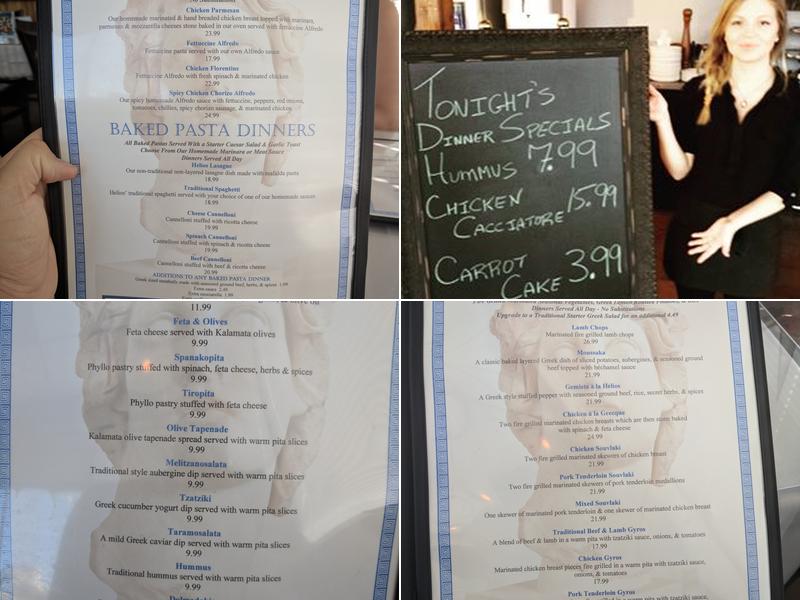 Chicken Parmesan
Our homemade marinated & hand breaded chicken breast topped with marinara,
parmesan & mozzarella cheeses stone baked in our oven served with fettuccine Alfredo
23.99
Fettuccine Alfredo
Fettuccine pasta served with our own Alfredo sauce
17.99
Chicken Florentine
Fettuccine Alfredo with fresh spinach & marinated chicken
22.99
Spicy Chicken Chorizo Alfredo
Our spicy homemade Alfredo sauce with fettuccine, peppers, red onions,
tomatoes, chillies, spicy chorizo sausage, & marinated chicken
24.99
BAKED PASTA DINNERS
All Baked Pastas Served With a Starter Caesar Salad & Garlic Toast
Choose From Our Homemade Marinara or Meat Sauce
Dinners Served All Day
Helios Lasagne
Our non-traditional non-layered lasagne dish made with mafalda pasta
18.99
Traditional Spaghetti
Helios' traditional spaghetti served with your choice of one of our homemade sauces
18.99
Cheese Cannelloni
Cannelloni stuffed with ricotta cheese
19.99
Spinach Cannelloni
Cannelloni stuffed with spinach & ricotta cheese
19.99
Beef Cannelloni
Cannelloni stuffed with beef & ricotta cheese
20.99
ADDITIONS TO ANY BAKED PASTA DINNER
Greek sized meatballs made with seasoned ground beef, herbs, & spices 1.99
Extra sauce 2.49
Extra mozzarella 1.99
TONIGHT'S
DINNER SPECIALS
HUMMUS 7.99
CHICKEN
CACCIATORE 15.99
CARROT
CAKE 3.99
11.99
Feta & Olives
Feta cheese served with Kalamata olives
9.99
Spanakopita
Phyllo pastry stuffed with spinach, feta cheese, herbs & spices
9.99
Tiropita
Phyllo pastry stuffed with feta cheese
9.99
Olive Tapenade
Kalamata olive tapenade spread served with warm pita slices
9.99
Melitzanosalata
Traditional style aubergine dip served with warm pita slices
9.99
Tzatziki
Greek cucumber yogurt dip served with warm pita slices
9.99
Taramosalata
A mild Greek caviar dip served with warm pita slices
9.99
Hummus
Traditional hummus served with warm pita slices
9.99
Dinners Served All Day - No Substitutions
Upgrade to a Traditional Starter Greek Salad for an additional 4.49
Lamb Chops
Marinated fire grilled lamb chops
26.99
Moussaka
A classic baked layered Greek dish of sliced potatoes, aubergines, & seasoned ground
beef topped with béchamel sauce
21.99
Gemista à la Helios
A Greek style stuffed pepper with seasoned ground beef, rice, secret herbs, & spices
21.99
Chicken à la Grecque
Two fire grilled marinated chicken breasts which are then stone baked
with spinach & feta cheese
24.99
Chicken Souvlaki
Two fire grilled marinated skewers of chicken breast
21.99
Pork Tenderloin Souvlaki
Two fire grilled marinated skewers of pork tenderloin medallions
21.99
Mixed Souvlaki
One skewer of marinated pork tenderloin & one skewer of marinated chicken breast
21.99
Traditional Beef & Lamb Gyros
A blend of beef & lamb in a warm pita with tzatziki sauce, onions, & tomatoes
17.99
Chicken Gyros
Marinated chicken breast pieces fire grilled in a warm pita with tzatziki sauce,
onions, & tomatoes
17.99
Pork Tenderloin Gyros